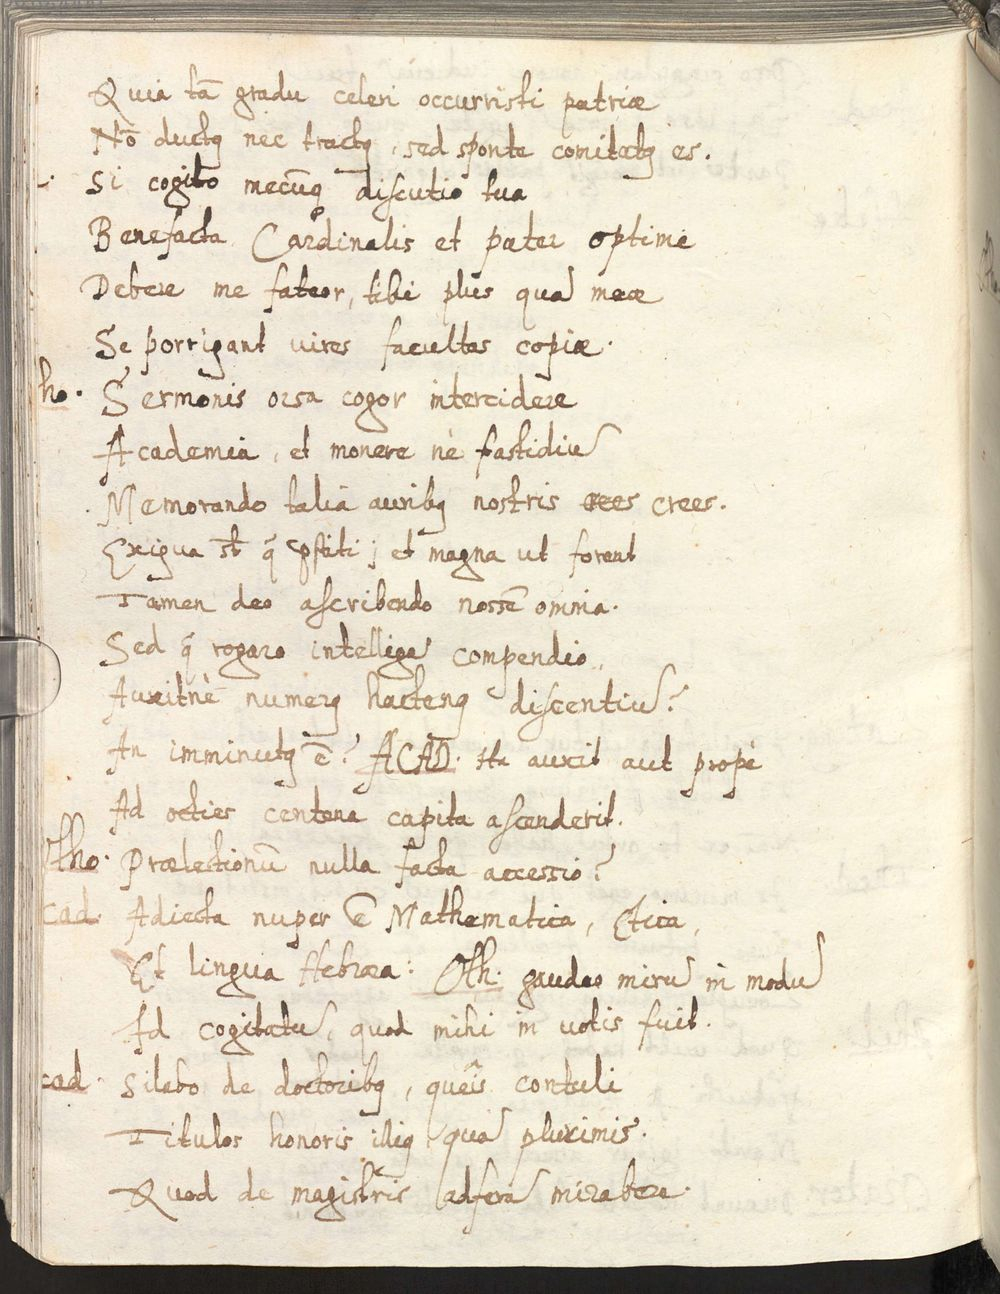 Quia tā gradu celeri occurristi patriæ
Nō ductꝰ nec tractꝰ, sed sponte comitatꝰ es.
Si cogito mecūq discutio tua
Benefacta Cardinalis et pater optime
Debere me fateor, tibi plus quā meæ
Se porrigant vires facultas copiæ.
ho. Sermonis orsa cogor intercidere
Academia, et monere nè fastidiū
Memorando talia auribꝰ nostris crees.
Exigua st̄ q̄ p̄stiti; et magna ut forent
Tamen deo ascribendo nossē omnia.
Sed q̄ rogaro intellige compendio,
Auxitnè numerꝰ hactenꝰ discentiū?
An imminutꝰ ē? ACAD. Ita auxit aut propè
Ad octies centena capita ascenderit.
Otho. Prælectionū nulla facta accessio?
cad. Adiecta nuper ē Mathematica, Etica,
Et lingua Hebræa: Oth. gaudeo mirū in modū
Id cogitatū, quod mihi in votis fuit.
cad. Silebo de doctoribꝰ, queis contuli
Titulos honoris illiq quā pluximis.
Quod de magistris adferā mirabere.